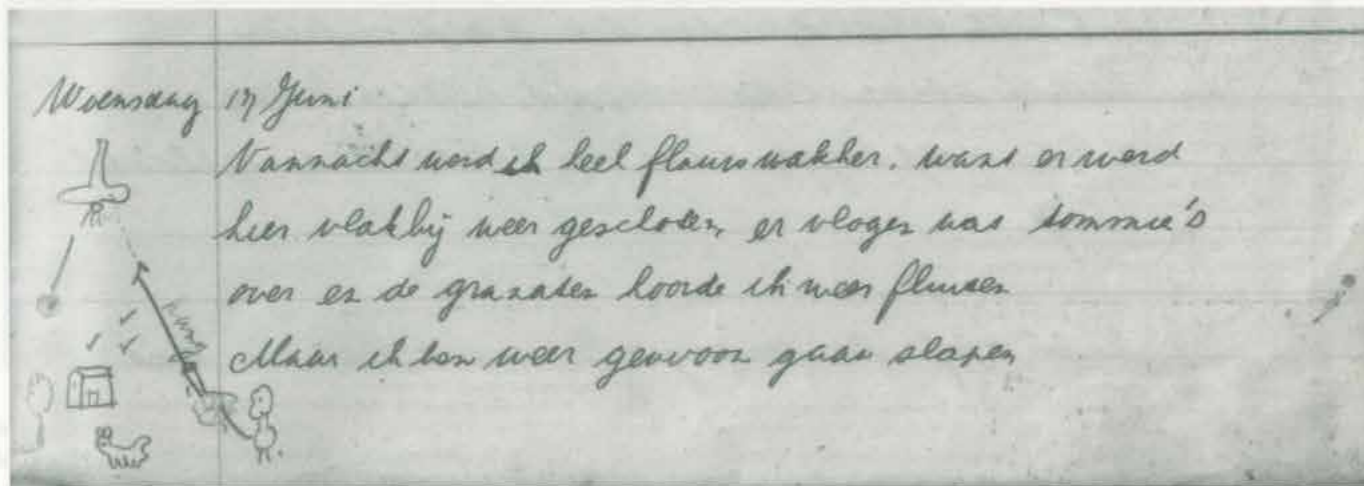 Woensdag 17 Juni
Vannacht werd ik heel flauw wakker. want er werd
hier vlakbij weer geschoten, er vlogen wat tommie's
over en de granaten hoorde ik weer fluiten
Maar ik ben weer gewoon gaan slapen